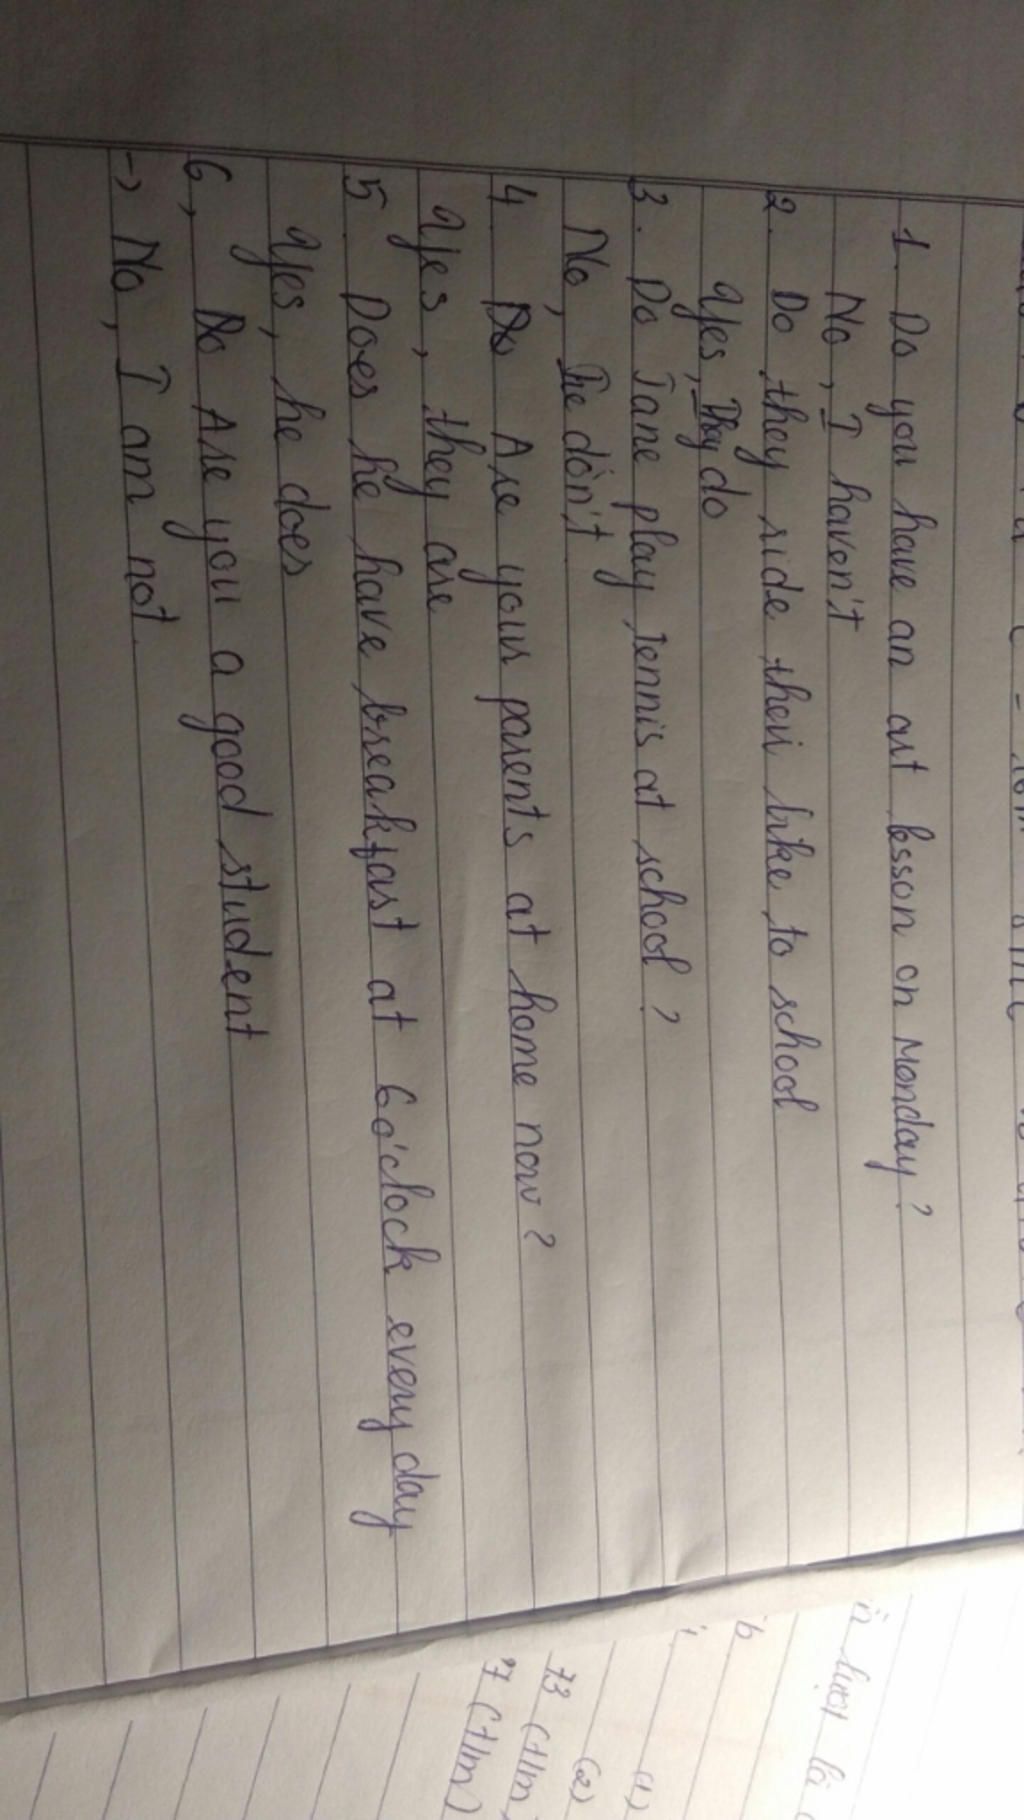 1. Do you have an art lesson on Monday?
No, I haven't
2. Do they ride their bike to school
Yes, They do
3. Do Jane play tennis at school?
No, he don't
4 Do Are your parents at home now?
Yes, they are
5. Does he have breakfast at 6 o'clock every day
Yes, he does
6, Do Are you a good student
-> No, I am not.
lượt là
(1)
(2)
73 (+1m)
(+1m)